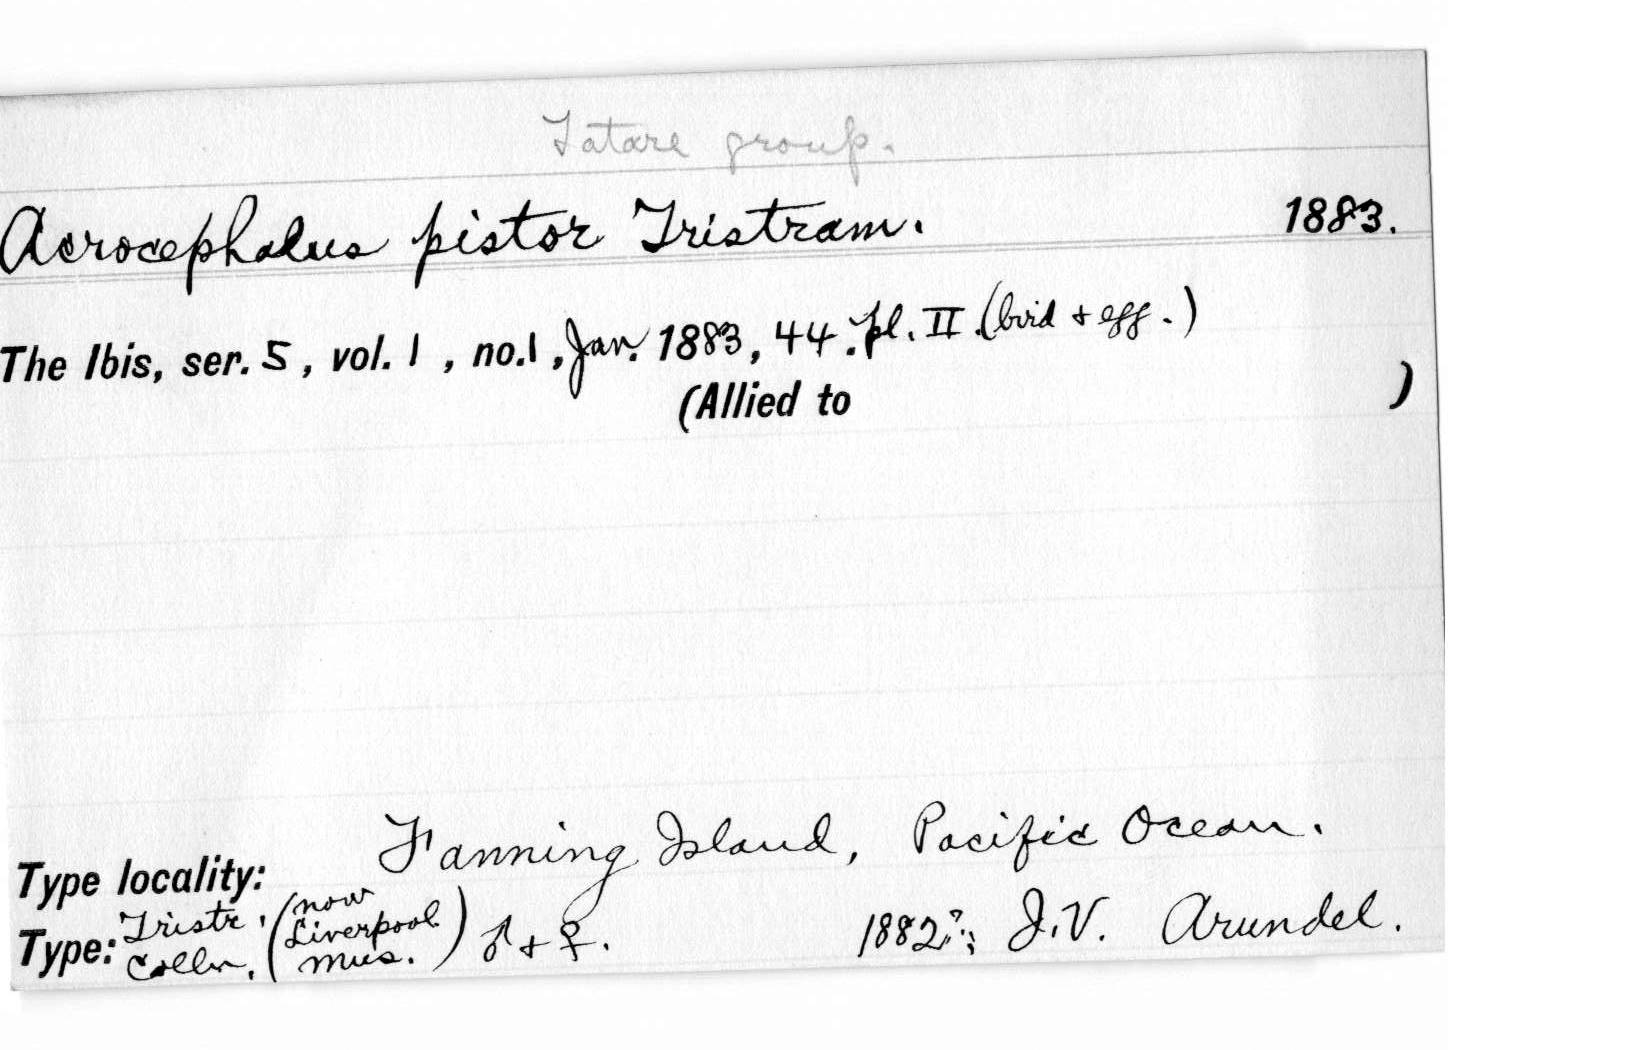 Tatare group.
Acrocephalus pistor Tristram. 1883.
The Ibis, ser. 5, vol. 1, no. 1, Jan. 1883, 44. pl. II. (bird + egg.)
(Allied to )
Type locality: Fanning Island, Pacific Ocean.
Type: Tristr. Colln. (now Liverpool Mus.) ♂ + ♀. 1882?; J.V. Arundel.